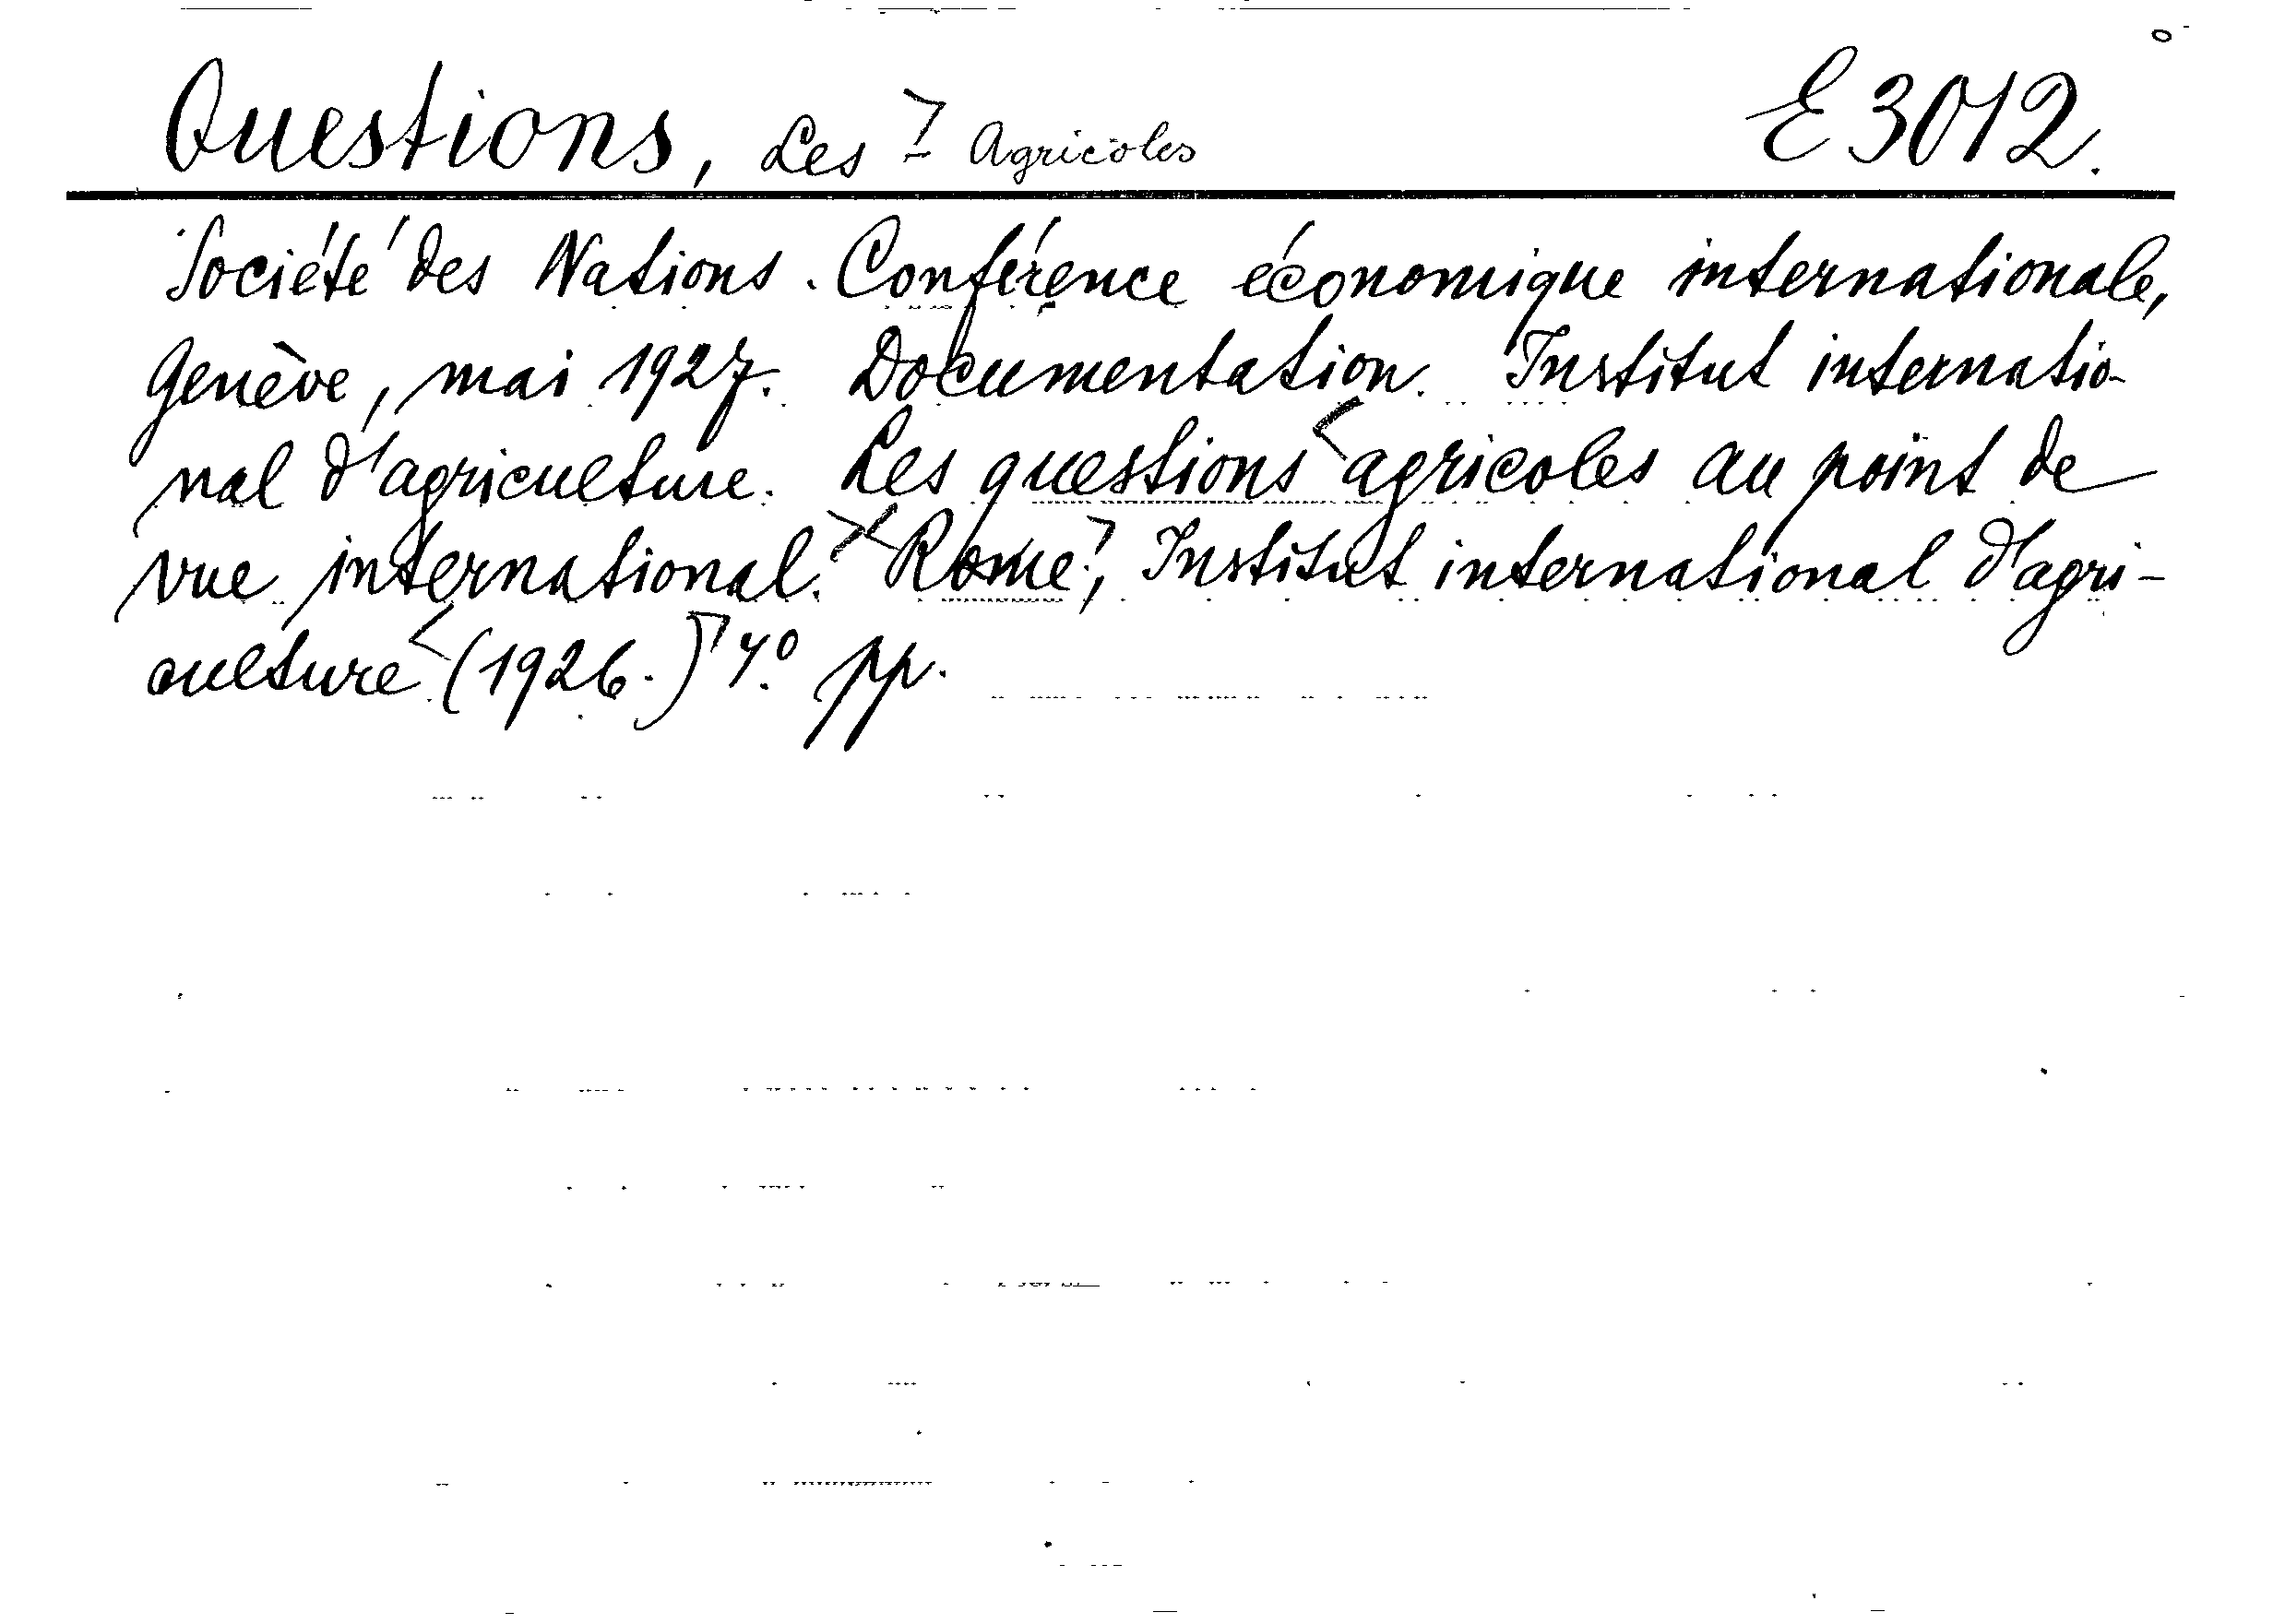 Questions, Les 7 Agricoles E 3012.
Société des Nations. Conférence économique internationale,
Genève, mai 1927. Documentation. Institut internatio-
nal d'agriculture. Les questions agricoles au point de
vue international. Rome, Institut international d'agri-
culture (1926.) 4º pp.